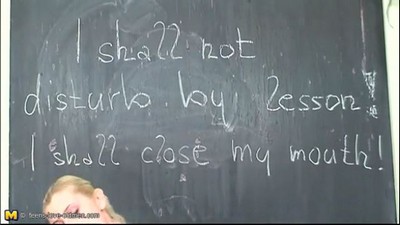 I shall not
disturb by lesson!
I shall close my mouth!
M